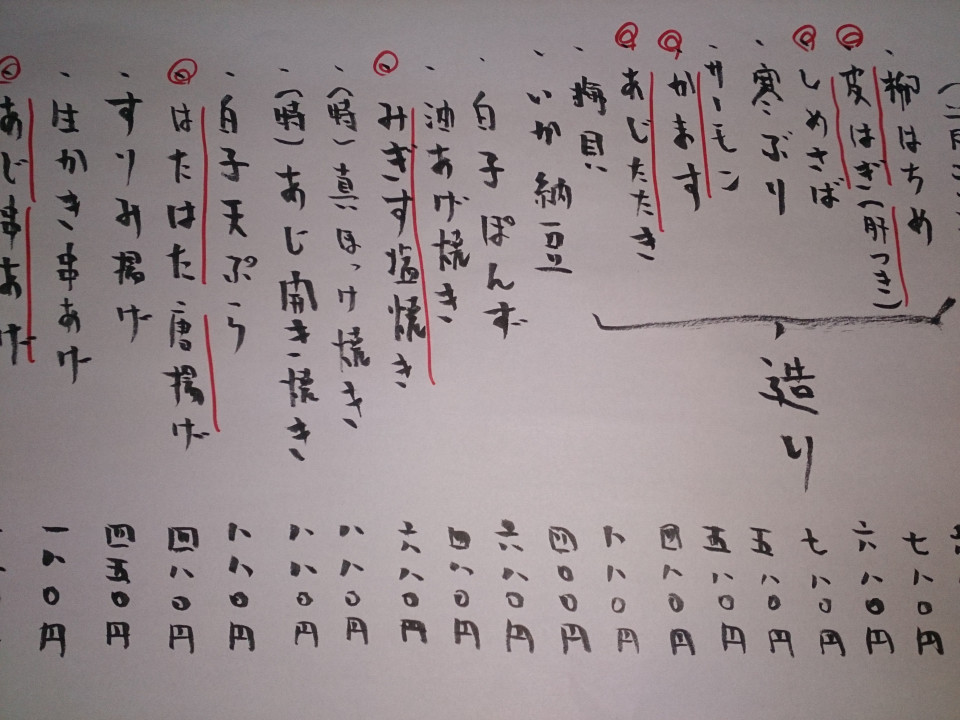 柳はちめ
皮はぎ(肝つき) 七八〇円
しめさば 六八〇円
寒ぶり 七八〇円
サーモン 五八〇円
かます 五八〇円
あじたたき 四八〇円
造り
梅貝 八八〇円
いか納豆 四〇〇円
白子ぽんず 六八〇円
油あげ焼き 四八〇円
みぎす塩焼き 六八〇円
(時)真ほっけ焼き 八八〇円
(時)あじ開き焼き 八八〇円
白子天ぷら 八八〇円
はたはた唐揚げ 四八〇円
すりみ揚げ 四五〇円
生かき串あげ 一八〇円
あじ串あげ